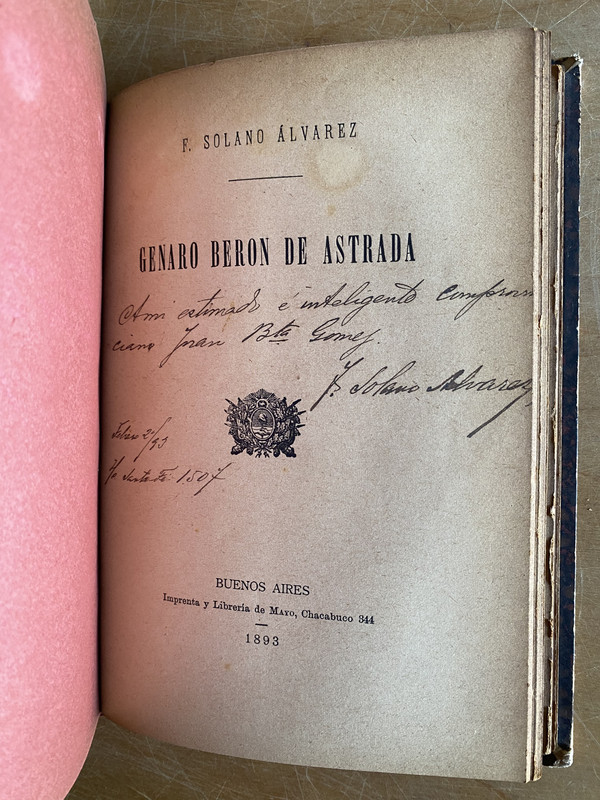 F. SOLANO ÁLVAREZ
GENARO BERON DE ASTRADA
A mi estimado é inteligente comprovin
ciano Juan Bta Gomez
F. Solano Alvarez
2/93
Santa Fé 1507
BUENOS AIRES
Imprenta y Librería de MAYO, Chacabuco 344
1893